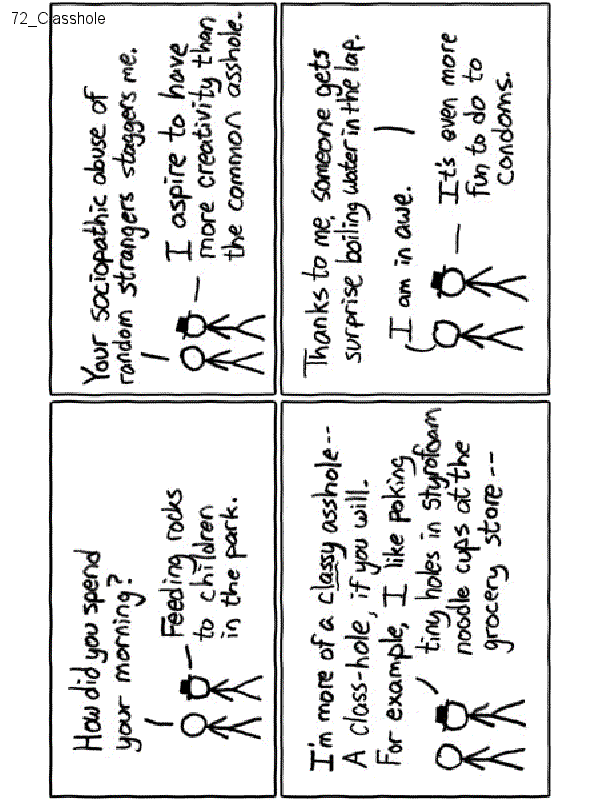 72_Classhole
How did you spend
your morning?
Feeding rocks
to children
in the park.
Your sociopathic abuse of
random strangers staggers me.
I aspire to have
more creativity than
the common asshole.
I'm more of a classy asshole--
A class-hole, if you will.
For example, I like poking
tiny holes in Styrofoam
noodle cups at the
grocery store--
Thanks to me, someone gets
surprise boiling water in the lap.
I am in awe.
It's even more
fun to do to
condoms.